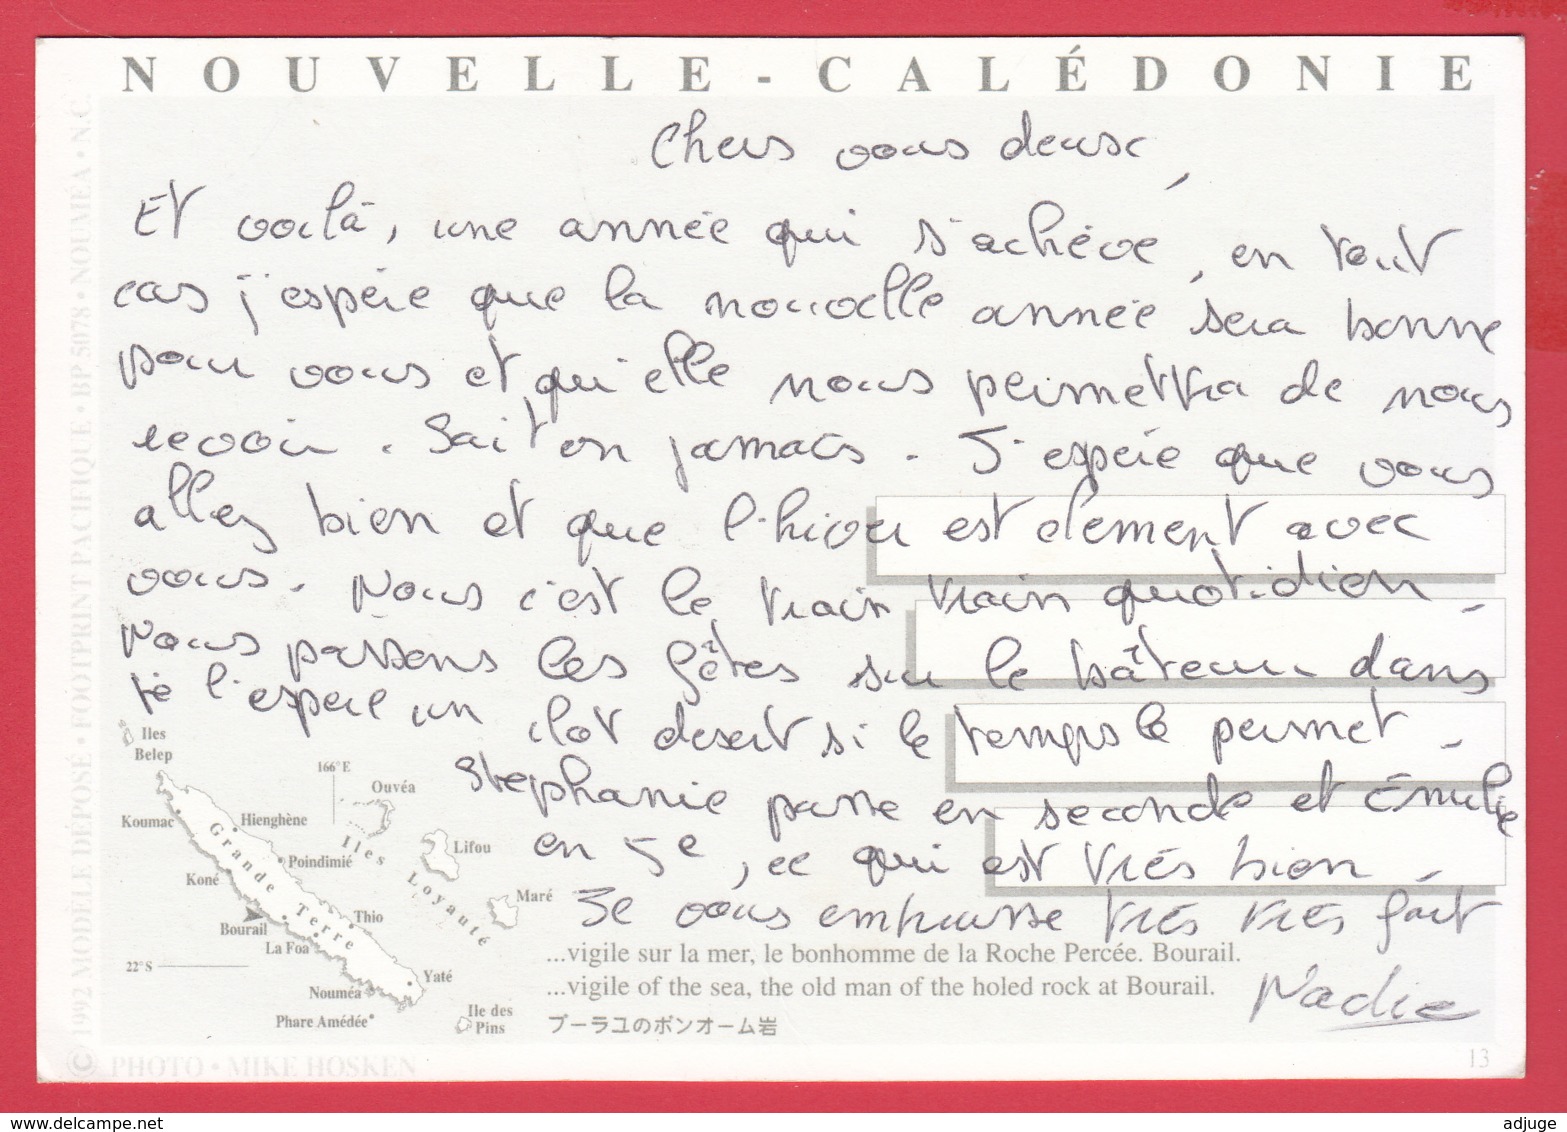 NOUVELLE-CALÉDONIE
Chers vous deux,
Et voilà, une année qui s'achève, en tout
cas j'espère que la nouvelle année sera bonne
pour vous et qu'elle nous permettra de nous
revoir. Sait on jamais. J'espère que vous
allez bien et que l'hiver est clément avec
vous. Nous c'est le train train quotidien.
Nous passons les fêtes sur le bâteau dans
je l'espère un ilot desert si le temps le permet.
Stephanie passe en seconde et Émilie
en 5e, ce qui est très bien.
Je vous embrasse très très fort
Nadie
Iles
Belep
166°E
Ouvéa
Koumac
Hienghène
Poindimié
Iles Loyauté
Lifou
Koné
Grande Terre
Maré
Bourail
Thio
La Foa
22°S
Yaté
Nouméa
Phare Amédée
Ile des
Pins
...vigile sur la mer, le bonhomme de la Roche Percée. Bourail.
...vigile of the sea, the old man of the holed rock at Bourail.
ブーラユのボンオーム岩
© 1992 MODÈLE DÉPOSÉ • FOOTPRINT PACIFIQUE • BP 5078 • NOUMÉA • N.C.
PHOTO • MIKE HOSKEN
13
delcampe.net
adjuge